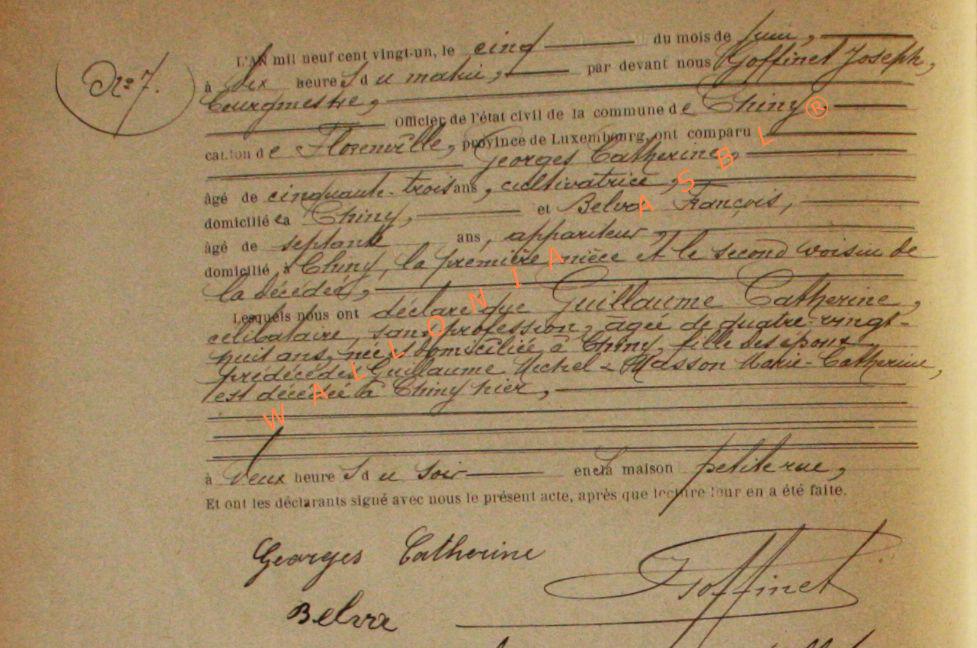 No 7.
L'AN mil neuf cent vingt-un, le cinq du mois de juin,
à dix heures du matin, par devant nous Goffinet Joseph,
bourgmestre,
Officier de l'état civil de la commune de Chiny,
canton de Florenville, province de Luxembourg, ont comparu
Georges Catherine,
âgé de cinquante-trois ans, cultivatrice,
domicilié à Chiny, et Belva François,
âgé de septante ans, appariteur,
domicilié à Chiny, la première nièce et le second voisin de
la décédée,
Lesquels nous ont déclaré que Guillaume Catherine,
célibataire, sans profession, âgée de quatre-vingt-
huit ans, née et domiciliée à Chiny, fille des époux
prédécédés Guillaume Michel & Masson Marie-Catherine,
est décédée à Chiny hier,
à deux heures du soir en la maison petite rue,
Et ont les déclarants signé avec nous le présent acte, après que lecture leur en a été faite.
Georges Catherine
Goffinet
Belva
WALLONIA ASBL ®